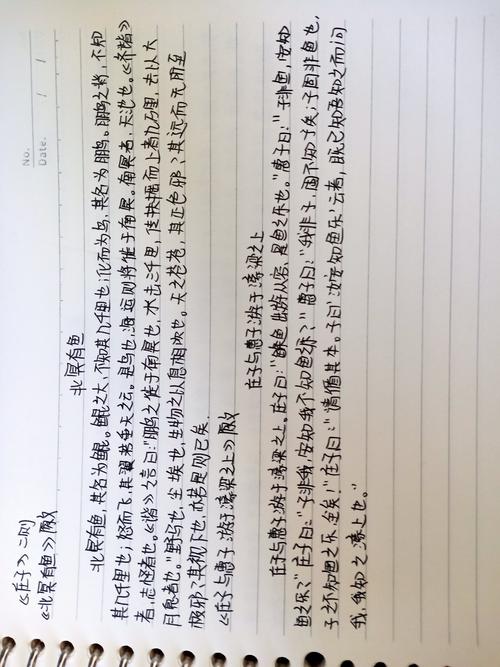 No.
Date.
《庄子》二则
《北冥有鱼》原文
北冥有鱼
北冥有鱼，其名为鲲。鲲之大，不知其几千里也；化而为鸟，其名为鹏。鹏之背，不知
其几千里也；怒而飞，其翼若垂天之云。是鸟也，海运则将徙于南冥。南冥者，天池也。《齐谐》
者，志怪者也。《谐》之言曰：“鹏之徙于南冥也，水击三千里，抟扶摇而上者九万里，去以六
月息者也。”野马也，尘埃也，生物之以息相吹也。天之苍苍，其正色邪？其远而无所至
极邪？其视下也，亦若是则已矣。
《庄子与惠子游于濠梁之上》原文
庄子与惠子游于濠梁之上
庄子与惠子游于濠梁之上。庄子曰：“鲦鱼出游从容，是鱼之乐也。”惠子曰：“子非鱼，安知
鱼之乐？”庄子曰：“子非我，安知我不知鱼之乐？”惠子曰：“我非子，固不知子矣；子固非鱼也，
子之不知鱼之乐，全矣！”庄子曰：“请循其本。子曰‘汝安知鱼乐’云者，既已知吾知之而问
我，我知之濠上也。”